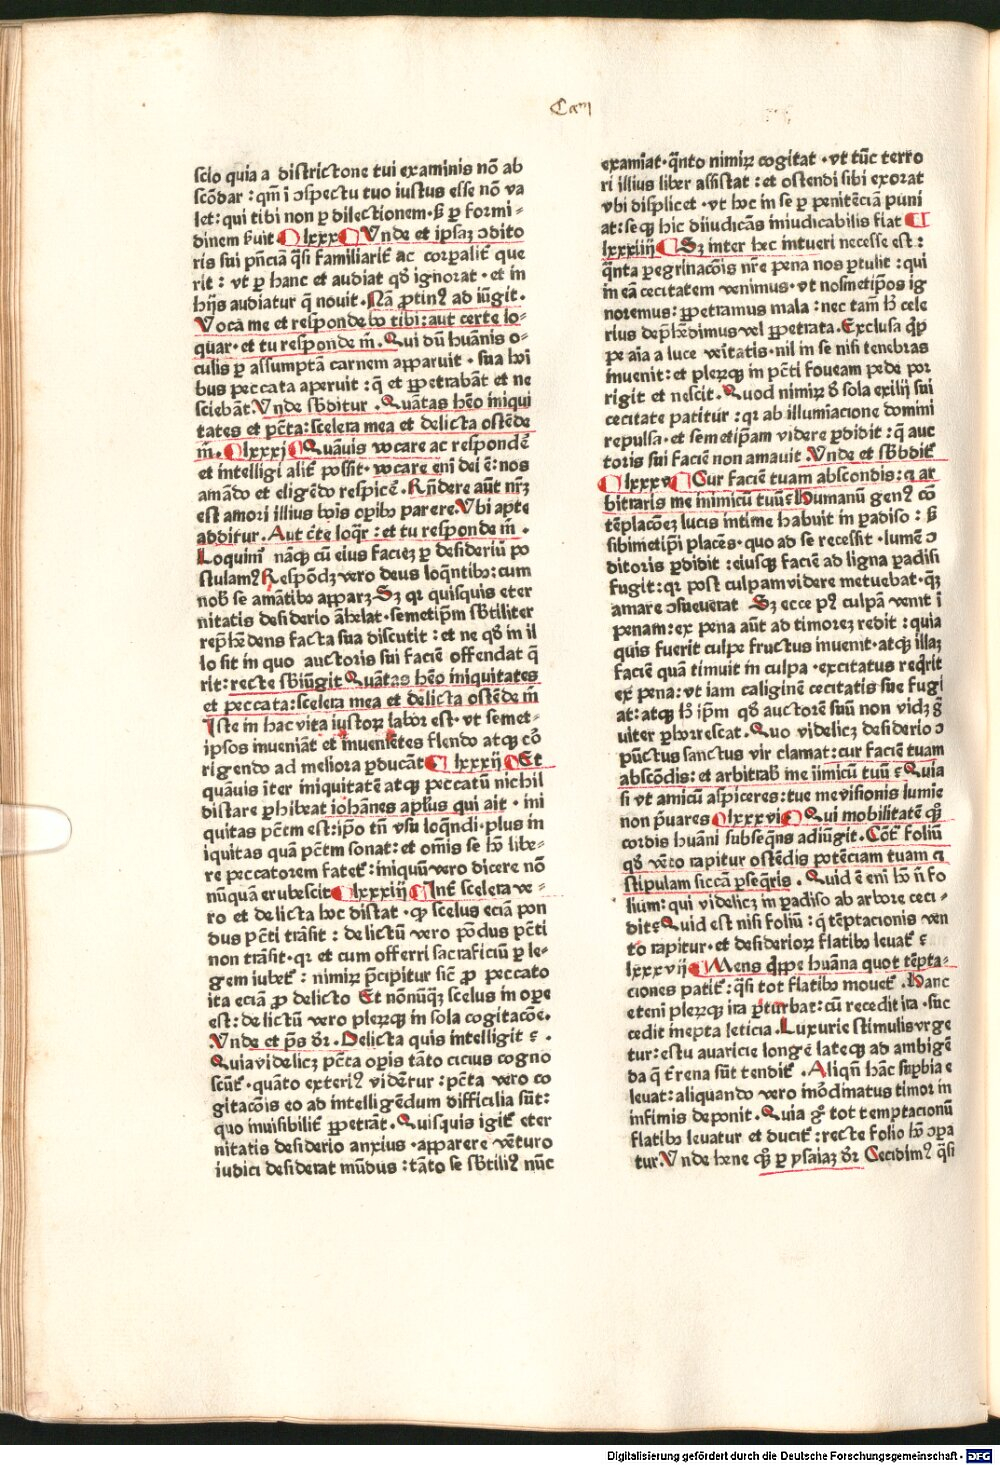 Cam
scio quia a districtone tui examinis nō ab
scōdar : qm̄ ī ↄspectu tuo iustus esse nō va
let: qui tibi non ꝑ dilectionem · ß ꝑ formi-
dinem ẜuit lxxx Vnde et ipsaꝫ ↄdito
ris sui pn̄ciam q̄si familiarit̉ ac corꝑalit̉ que
rit : vt ꝑ hanc et audiat qd̉ ignorat · et in
hijs audiatur q̄ nouit. Nā ꝓtinꝰ ad iūgit.
Voca me et respondebo tibi: aut certe lo-
quar · et tu responde m̄. Qui dū huānis o-
culis ꝑ assumptā carnem apparuit · sua hoi
bus peccata aperuit : q̄ et ꝑpetrabāt et ne
sciebāt. Vnde sb̄ditur . Quātas hēo iniqui
tates et pctā: scelera mea et delicta ostēde
m̄. lxxxj Quāuis vocare ac respondē
et intelligi alit̉ possit · vocare eni dei ē: nos
amādo et eligēdo respicē. Rn̄dere aūt nr̄ꝫ
est amori illius bōis oꝑibꝯ parere. Vbi apte
additur. Aut c̄te loqr̄ : et tu responde m̄ .
Loquimꝰ nāqꝫ cū eius facieꝫ ꝑ desideriū po
stulamꝰ Respōdꝫ vero deus loqn̄tibꝯ: cum
nob̄ se amātibꝯ apparꝫ. Sꝫ qꝛ quisquis eter
nitatis desiderio āhelat · semetip̄m sb̄tiliter
rep̄hēdens facta sua discutit : et ne qd̉ in il
lo sit in quo auctoris sui faciē offendat q̄
rit: recte sb̄iūgit Quātas hēo iniquitates
et peccata: scelera mea et delicta ostēde m̄
Iste in hac vita iustoꝝ labor est · vt semet-
ipsos inueniāt et inuenietes flendo atqꝫ cō
rigendo ad meliora ꝑducāt lxxxij Et
quāuis īter iniquitatē atqꝫ peccatū nichil
distare ꝑhibeat iohānes apl̄us qui ait · ini
quitas pctm̄ est: ip̄o tn̄ vsu loqn̄di · plus in
iquitas quā pctm̄ sonat: et om̄is se ho libe-
re peccatorem fatet̉: iniquū vero dicere nō
nūquā erubescit lxxxiij Int̉ scelera ve-
ro et delicta hoc distat · qꝫ scelus eciā pon
dus pcti trāsit : delictū vero pōdus pcti
non trāsit · qꝛ et cum offerri sacraficiū ꝑ le-
gem iubet̉ : nimiꝝ p̄cipitur sic̄ ꝓ peccato
ita eciā ꝓ delicto Et nōnūqꝫ scelus in oꝑe
est: delictū vero pleꝝqꝫ in sola cogitacōe.
Vnde et p̄s dr̄. Delicta quis intelligit ꝰ .
Quia videlicꝫ pctā oꝑis tāto cicius cogno
scūt̉ · quāto exteriꝰ vidētur : pctā vero co
gitacōis eo ad intelligēdum difficilia sūt:
quo inuisibilit̉ ꝑpetrāt̉. Quisquis igit̉ eter
nitatis desiderio anxius · apparere vēturo
iudici desiderat mūdus : tāto se sb̄tiliꝰ nūc
examīat · q̄nto nimiꝝ cogitat · vt tūc terro
ri illius liber assistat : et ostendi sibi exorat
vbi displicet · vt hoc in se ꝑ penitēciā puni
at: seqꝫ hic diiudicās iniudicabilis fiat
lxxxiiij Sꝫ inter hec intueri necesse est :
q̄nta ꝑegrinacōis nr̄e pena nos ꝑtulit : qui
in eā cecitatem venimus · vt nosmetip̄os ig
noremus: ꝑpetramus mala : nec tam̄ h̄ cele
rius dep̄hēdimus vel ꝑpetrata. Exclusa qꝑ
pe aīa a luce vēitatis · nil in se nisi tenebras
inuenit: et pleꝝqꝫ in pcti foueam pede por
rigit et nescit. Quod nimiꝝ d̉ sola exilij sui
cecitate patitur : qꝛ ab illumīacione domini
repulsa · et semetip̄am videre ꝑdidit : q̄ auc
toris sui faciē non amauit. Vnde et sb̄bdit̉
lxxxv Cur faciē tuam abscondis: ⁊ ar
bitraris me inimicū tuū ꝰ Humanū genꝰ cō
tēplacōeꝫ lucis intime habuit in ꝑadiso : ß
sibimetip̄i placēs · quo ad se recessit · lumē ↄ
ditoris ꝑdidit : eiusqꝫ faciē ad ligna ꝑadisi
fugit: qꝛ post culpam videre metuebat · qꝫ
amare ↄsueuerat Sꝫ ecce pꝰ culpā venit ī
penam: ex pena aūt ad timoreꝫ redit : quia
quis fuerit culpe fructus inuenit · atqꝫ illaꝫ
faciē quā timuit in culpa · excitatus reqr̄it
ex pena: vt iam caliginē cecitatis sue fugi
at: atqꝫ h̄ ip̄m qd̉ auctorē suū non vidꝫ g̉
uiter ꝑhorrescat. Quo videlicꝫ desiderio ↄ
pūctus sanctus vir clamat: cur faciē tuam
abscōdis: et arbitrar̄ me iimicū tuū ꝰ Quia
si vt amicū aspiceres: tue me visionis lumīe
non p̄uares lxxxvi Qui mobilitatē qꝫ
cordis huāni subseqn̄s adiūgit. Cōt̉ foliū
qd̉ vēto rapitur ostēdis potēciam tuam ⁊
stipulam siccā ꝑseq̄ris . Quid ē eni ho n̄ fo
lium: qui videlicꝫ in ꝑadiso ab arbore ceci-
dit ꝰ Quid est nisi foliū : q̄ tēptacionis ven
to rapitur · et desiderioꝝ flatibꝯ leuat̉ ꝰ
lxxxvij Mens qꝑpe huāna quot tēpta-
ciones patit̉: q̄si tot flatibꝯ mouet̉ . Hanc
eteni pleꝝqꝫ ira ꝑturbat: cū recedit ira · suc
cedit inepta leticia. Luxurie stimulis vrge
tur: estu auaricie longe lateqꝫ ad ambigē
da q̄ t̉rena sūt tendit̉ . Aliqn̄ hāc suꝑbia e
leuat: aliquando vero inōdinatus timor in
infimis deponit. Quia g̉ tot temptacionū
flatibꝯ leuatur et ducit̉ : recte folio ho ↄꝑa
tur. Vnde bene qꝫ ꝑ ysaiaꝫ dr̄ Cecidimꝰ q̄si
Digitalisierung gefördert durch die Deutsche Forschungsgemeinschaft - DFG